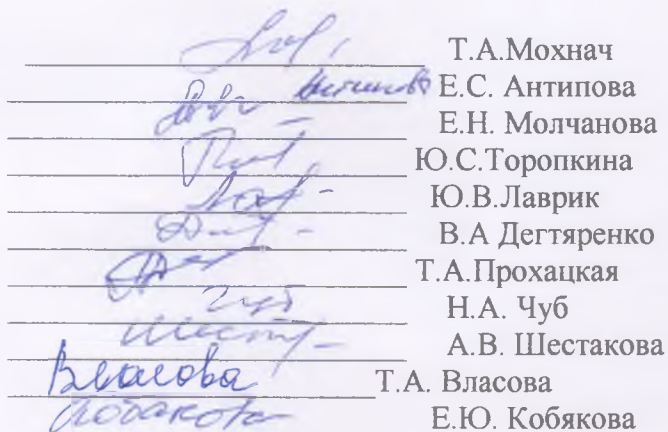 Т.А.Мохнач
Антипова Е.С. Антипова
Е.Н. Молчанова
Ю.С.Торопкина
Ю.В.Лаврик
В.А Дегтяренко
Т.А.Прохацкая
Чуб Н.А. Чуб
Шест А.В. Шестакова
Власова Т.А. Власова
Кобякова Е.Ю. Кобякова